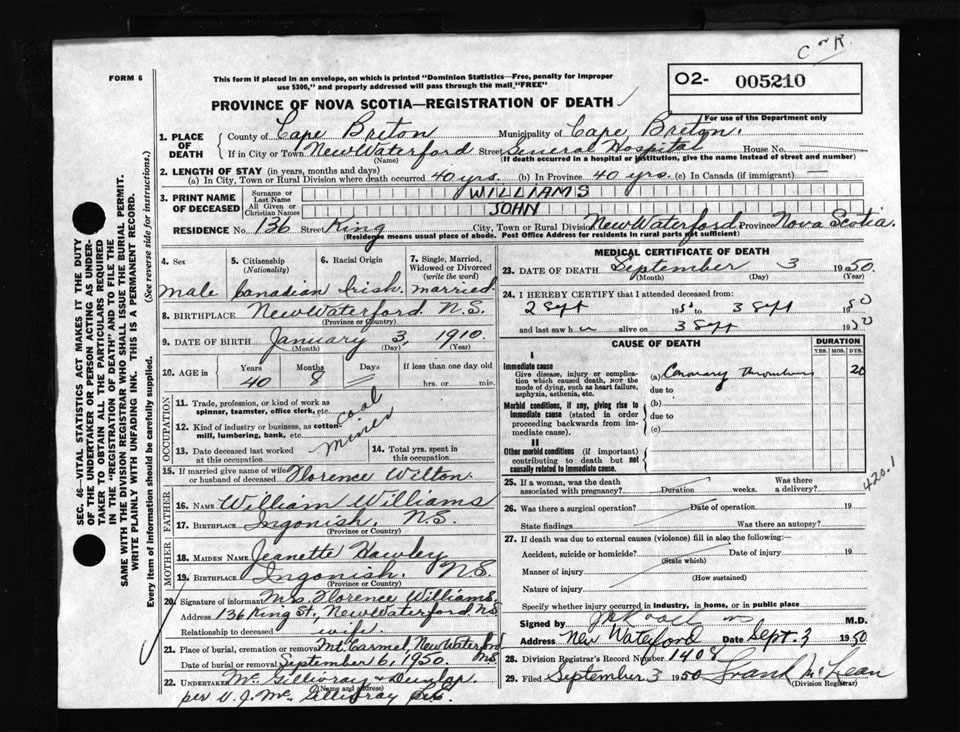 C & R.
FORM 6
This form if placed in an envelope, on which is printed "Dominion Statistics—Free, penalty for improper
use $300," and properly addressed will pass through the mail, "FREE"
O2- 005210
For use of the Department only
PROVINCE OF NOVA SCOTIA—REGISTRATION OF DEATH
1. PLACE OF DEATH { County of Cape Breton Municipality of Cape Breton.
If in City or Town New Waterford Street General Hospital House No.
(Name) (If death occurred in a hospital or institution, give the name instead of street and number)
2. LENGTH OF STAY (in years, months and days)
(a) In City, Town or Rural Division where death occurred 40 yrs. (b) In Province 40 yrs. (c) In Canada (if immigrant) —
3. PRINT NAME OF DECEASED { Surname or Last Name WILLIAMS
All Given or Christian Names JOHN
RESIDENCE No. 136 Street King City, Town or Rural Division New Waterford Province Nova Scotia.
(Residence means usual place of abode. Post Office Address for residents in rural parts not sufficient)
SEC. 46—VITAL STATISTICS ACT MAKES IT THE DUTY
OF THE UNDERTAKER OR PERSON ACTING AS UNDER-
TAKER TO OBTAIN ALL THE PARTICULARS REQUIRED
IN THE "REGISTRATION OF DEATH" AND TO FILE THE
SAME WITH THE DIVISION REGISTRAR WHO SHALL ISSUE THE BURIAL PERMIT.
WRITE PLAINLY WITH UNFADING INK. THIS IS A PERMANENT RECORD.
Every item of information should be carefully supplied. (See reverse side for instructions.)
4. Sex 5. Citizenship (Nationality) 6. Racial Origin 7. Single, Married, Widowed or Divorced (write the word)
male Canadian Irish. married.
8. BIRTHPLACE New Waterford N.S.
(Province or Country)
9. DATE OF BIRTH January 3, 1910.
(Month) (Day) (Year)
10. AGE in { Years Months Days If less than one day old
40 8 = hrs. or min.
OCCUPATION
11. Trade, profession, or kind of work as
spinner, teamster, office clerk, etc. coal
12. Kind of industry or business, as cotton-
mill, lumbering, bank, etc. miner
13. Date deceased last worked
at this occupation
14. Total yrs. spent in
this occupation
15. If married give name of wife
or husband of deceased Florence Wilton.
FATHER
16. NAME William Williams
17. BIRTHPLACE Ingonish. N.S.
MOTHER
18. MAIDEN NAME Jeanette Hawley
19. BIRTHPLACE Ingonish. N.S.
(Province or Country)
20. Signature of informant Mrs. Florence Williams.
Address 136 King St., New Waterford NS
Relationship to deceased wife.
21. Place of burial, cremation or removal Mt. Carmel, New Waterford NS
Date of burial or removal September 6, 1950.
22. UNDERTAKER Mc Gillivray & Dunlap.
(Name and address)
per V. J. Mc Gillivray
MEDICAL CERTIFICATE OF DEATH
23. DATE OF DEATH September 3 1950.
(Month) (Day)
24. I HEREBY CERTIFY that I attended deceased from:
2 Sept 1950 to 3 Sept 1950
and last saw h alive on 3 Sept 1950
CAUSE OF DEATH DURATION
YRS. MOS. DYS.
I
Immediate cause
Give disease, injury or complica-
tion which caused death, NOT the
mode of dying, such as heart failure,
asphyxia, asthenia, etc.
(a) Coronary Thrombosis
due to
Morbid conditions, if any, giving rise to
immediate cause (stated in order
proceeding backwards from im-
mediate cause).
(b)
due to
(c)
II
Other morbid conditions (if important)
contributing to death but not
causally related to immediate cause.
420.1
25. If a woman, was the death
associated with pregnancy? Duration weeks. Was there
a delivery?
26. Was there a surgical operation? Date of operation 19
State findings Was there an autopsy?
27. If death was due to external causes (violence) fill in also the following:
Accident, suicide or homicide? Date of injury 19
(State which)
Manner of injury
(How sustained)
Nature of injury
Specify whether injury occurred in industry, in home, or in public place
Signed by M.D.
Address New Waterford Date Sept. 3 1950
28. Division Registrar's Record Number 1408
29. Filed September 3 1950 Frank McLean
(Division Registrar)